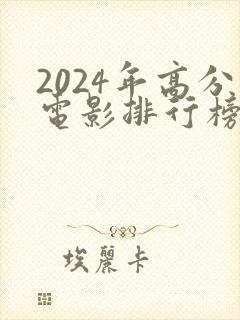 2024年高分
电影排行榜
埃麗卡